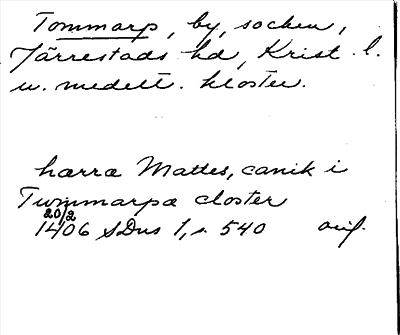 Tommarp, by, socken,
Järrestads hd, Krist. l.
u. medelt. kloster.
harra Mattes, canik i
Twmmarpa closter
20/2
1406 SDns 1, s. 540 orig.